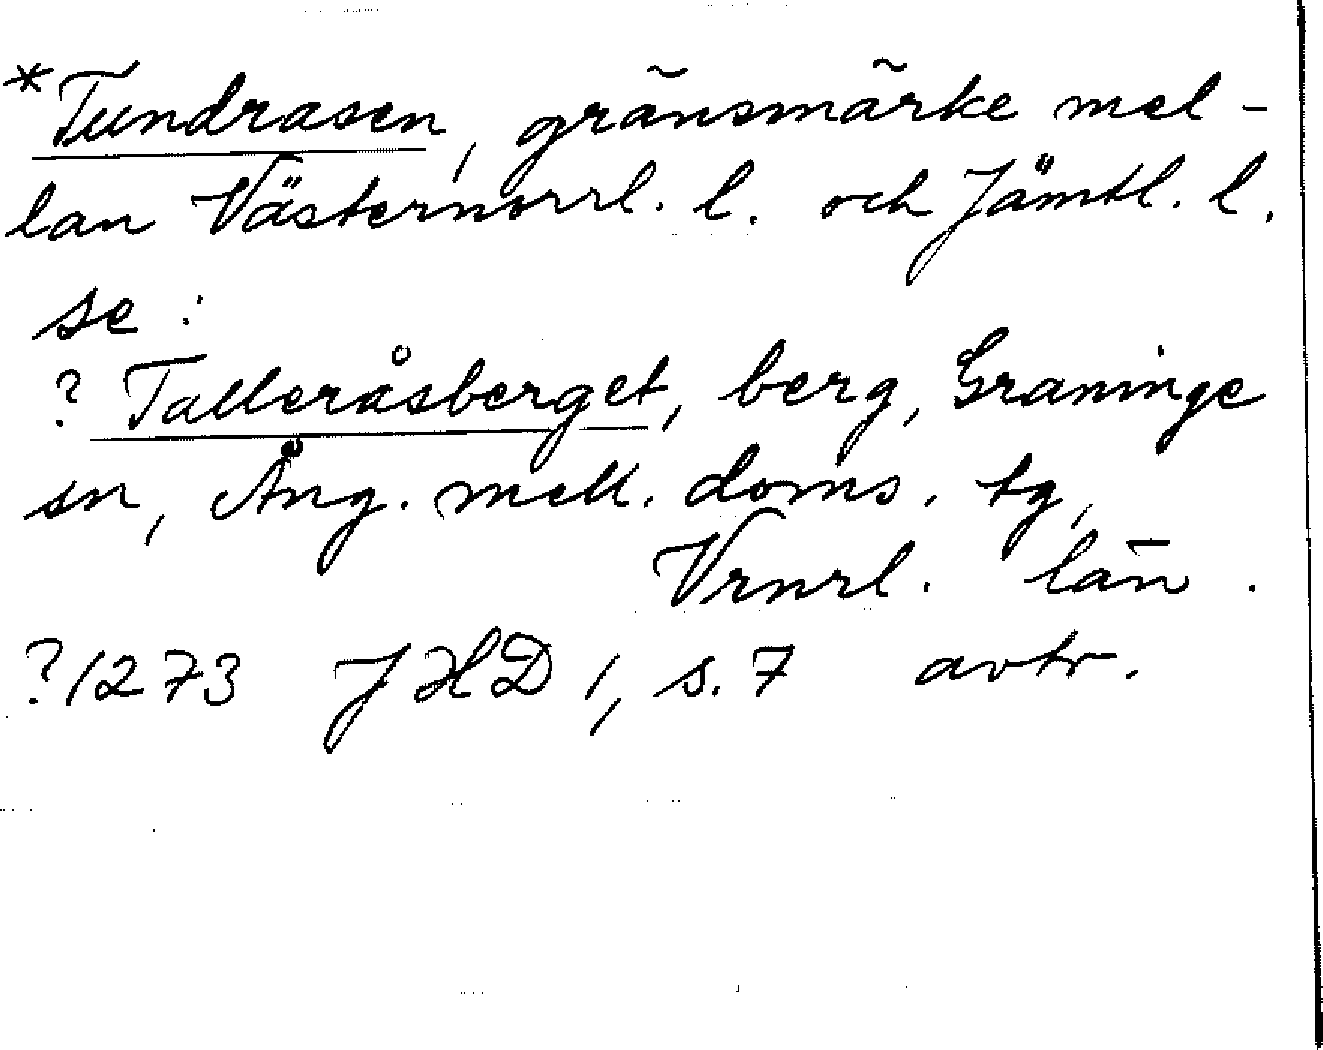 *Tundrasen, gränsmärke mel-
lan Västernorrl. l. och Jämtl. l.
se :
? Talleråsberget, berg, Graninge
sn, Ång. mell. doms. tg,
Vrnrl. län.
?1273 JHD 1, s. 7 avtr.